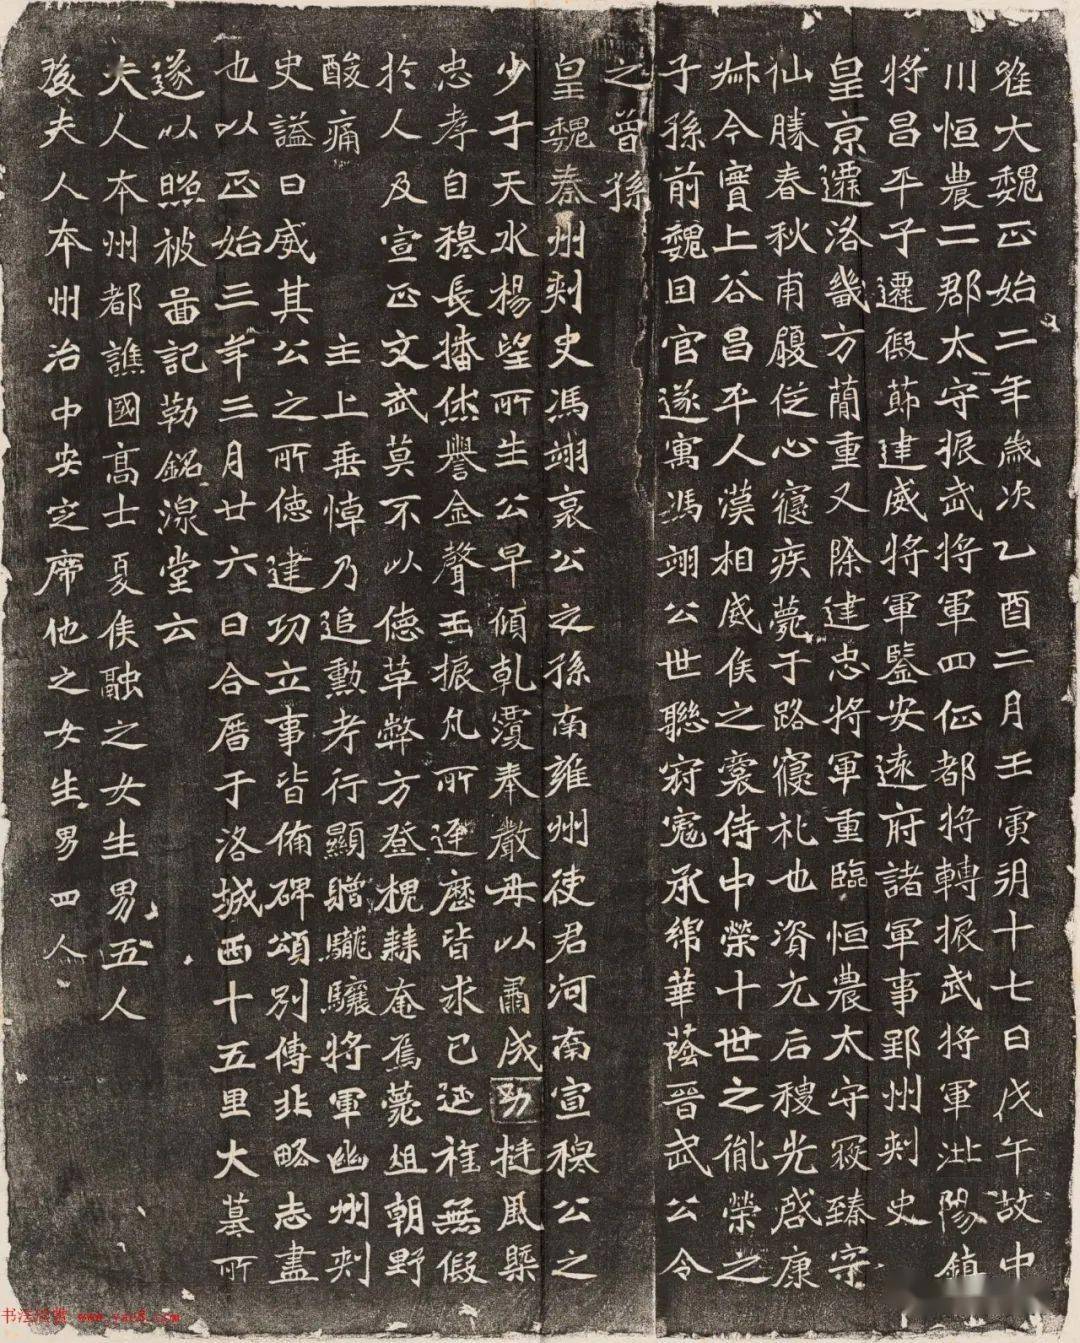 唯大魏正始二年歲次乙酉二月壬寅朔十七日戊午故中
川恒農二郡太守振武將軍四征都將轉振武將軍沘陽鎮
將昌平子遷假節建威將軍鑒安遠府諸軍事郢州刺史
皇京遷洛畿方簡重又除建忠將軍重臨恒農太守冥臻宗
仙勝春秋甫履從心寢疾薨于路寢礼也資元后稷光启康
叔今實上谷昌平人漢相威侯之裔侍中榮十世之胤榮之
子孫前魏因官遂寓馮翊公世聯冠冕承綿華蔭晉武公令
之曾孫
皇魏秦州刺史馮翊哀公之孫南雍州使君河南宣穆公之
少子天水楊望所生公早傾乾覆奉嚴母以肅成幼挺風槩
忠孝自穆長播休譽金聲玉振凡所逕歷皆求己延祉無假
於人及宣正文武莫不以德草弊方登槐棘奄焉薨俎朝野
酸痛
主上垂悼乃追勳考行顯贈驪驤將軍幽州刺
史謚曰威其公之所德建功立事皆備碑頌別傳非略志盡
也以正始三年三月廿六日合厝于洛城西十五里大墓所
遂以照被啚記勒銘湶堂云
夫人本州都譙國高士夏侯融之女生男五人
後夫人本州治中安定席他之女生男四人
书法欣赏 www.yac8.com